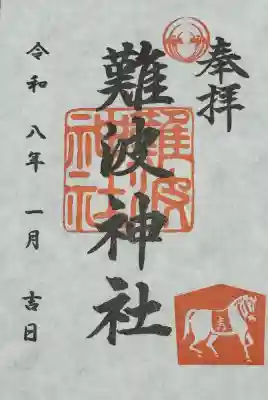 奉拝
難波神社
難波
神社
令和八年 一月 吉日